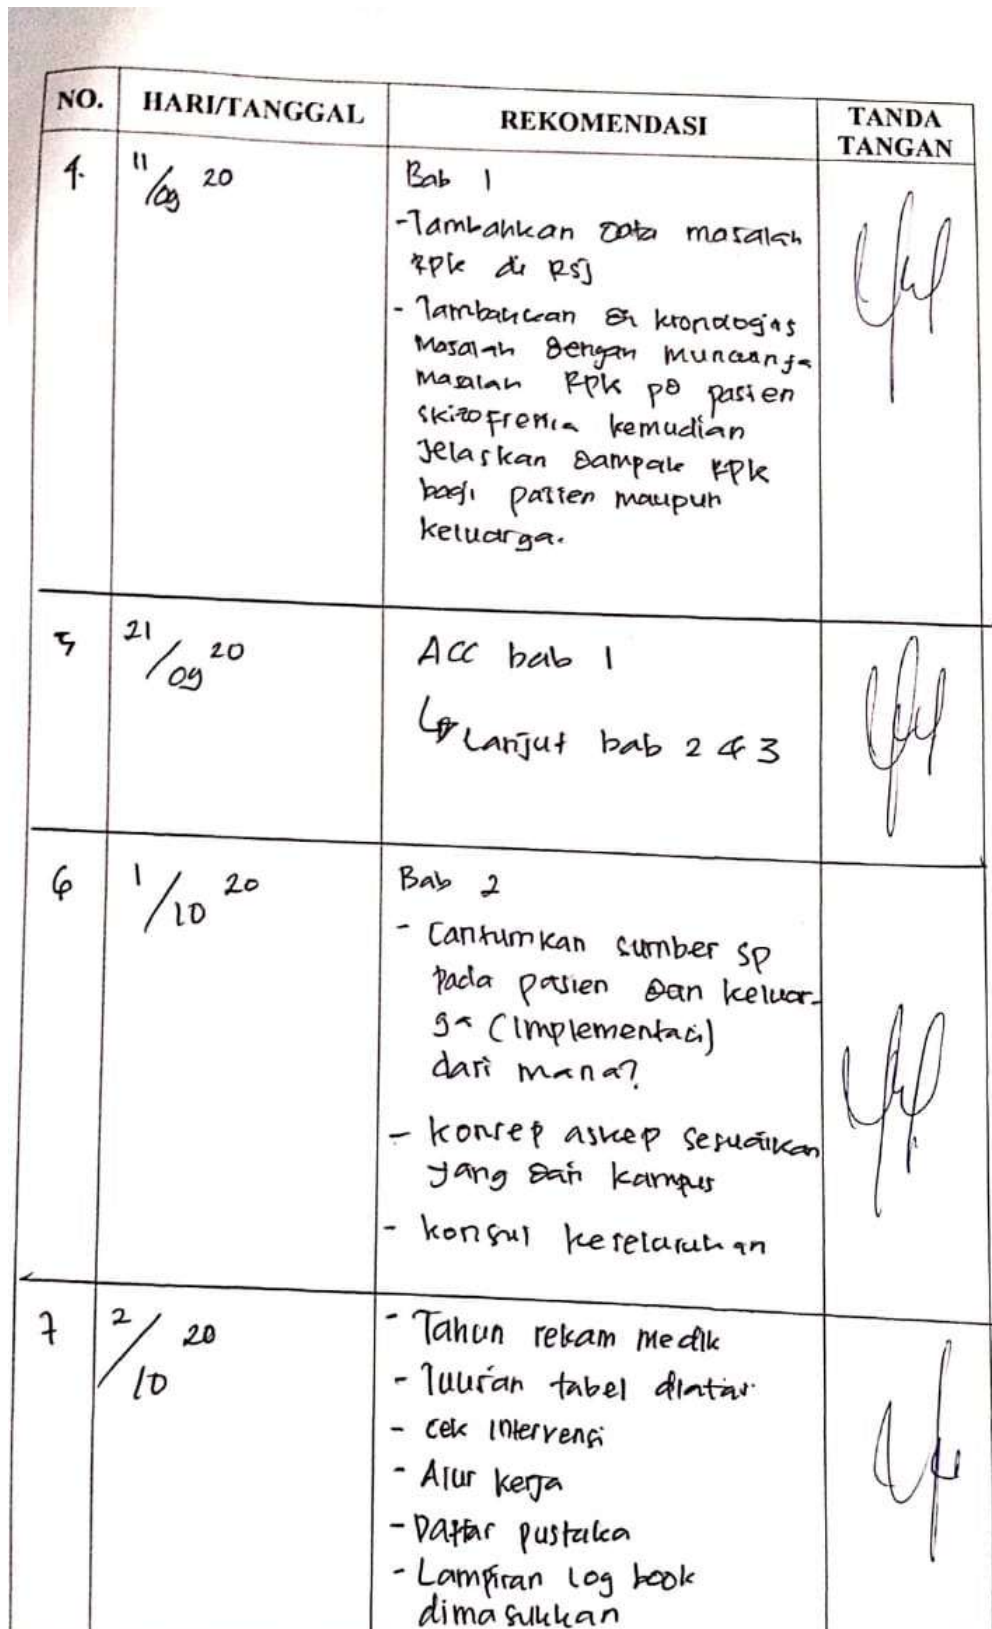 NO. HARI/TANGGAL REKOMENDASI TANDA TANGAN
4. 11/09 20 Bab 1
-Tambahkan data masalah
RPK di RSJ
- Tambahkan kronologis
Masalah dengan munculnya
Masalah RPK pd pasien
skizofrenia kemudian
Jelaskan dampak RPK
bagi pasien maupun
keluarga.
5 21/09 20 ACC bab 1
↳ Lanjut bab 2 & 3
6 1/10 20 Bab 2
- Cantumkan sumber SP
pada pasien dan keluar-
ga (Implementasi)
dari mana?
- konsep askep sesuaikan
yang dari kampus
- konsul keseluruhan
7 2/10 20 - Tahun rekam medik
- tabel diatas
- cek Intervensi
- Alur kerja
- Daftar pustaka
- Lampiran log book
dimasukkan